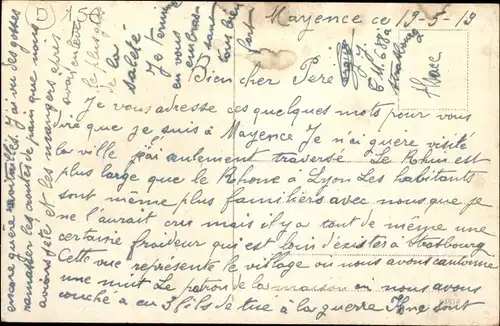 Mayence ce 19-5-19
Bien cher Père
Je vous adresse ces quelques mots pour vous
dire que je suis à Mayence Je n'ai guère visité
la ville j'ai seulement traversé. Le Rhin est
plus large que le Rhone à Lyon Les habitants
sont même plus familiers avec nous que je
ne l'aurait cru mais il y a tout de même une
certaine froideur qui est loin d'exister à Strasbourg
Cette vue représente le village ou nous avons cantonné
une nuit Le patron de la maison ou nous avons
couché a eu 3 fils de tué à la guerre Ils ne sont
encore guère ravitaillés J'ai vu des gosses
ramasser les croutes de pain que nous
avions jeté et les manger après
avoir enlevé
le plus gros
de la
saleté
Je termine
en vous
embrassant
tous bien
fort
Strasbourg
Alsace